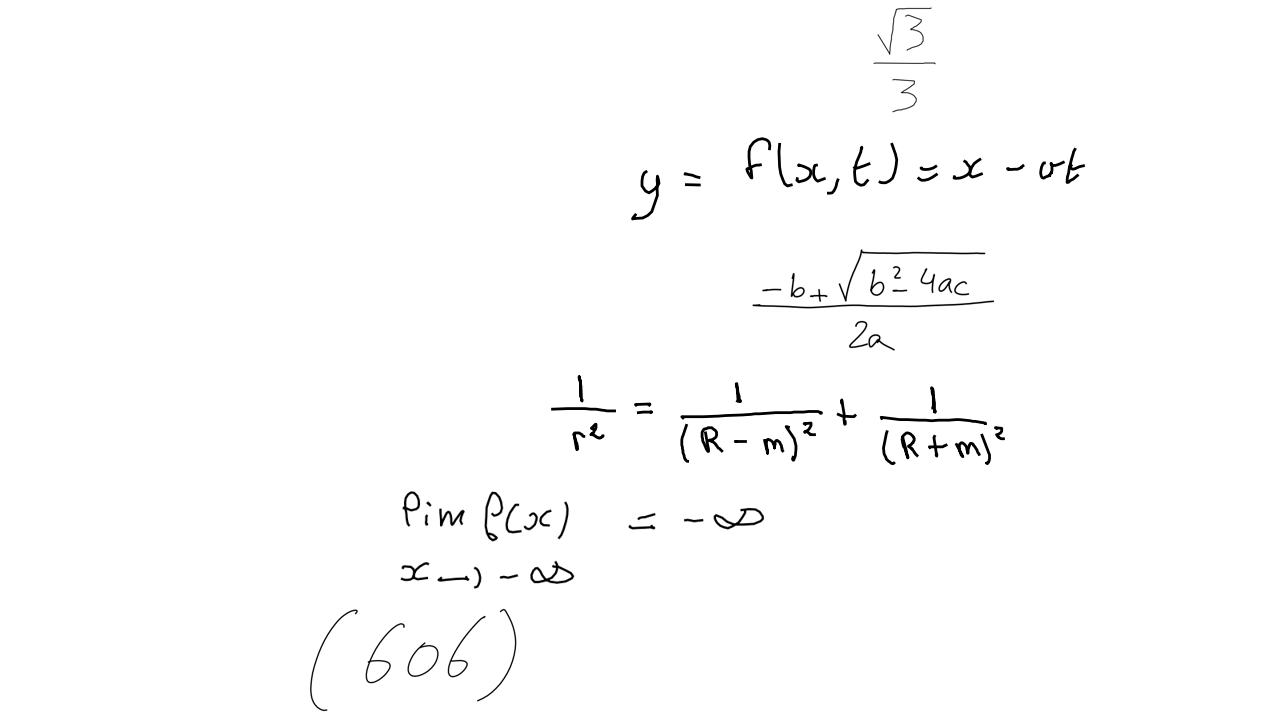 \frac{\sqrt{3}}{3}
y = f(x, t) = x - vt
\frac{-b + \sqrt{b^2 - 4ac}}{2a}
\frac{1}{r^2} = \frac{1}{(R - m)^2} + \frac{1}{(R + m)^2}
\lim_{x \to -\infty} f(x) = -\infty
(606)